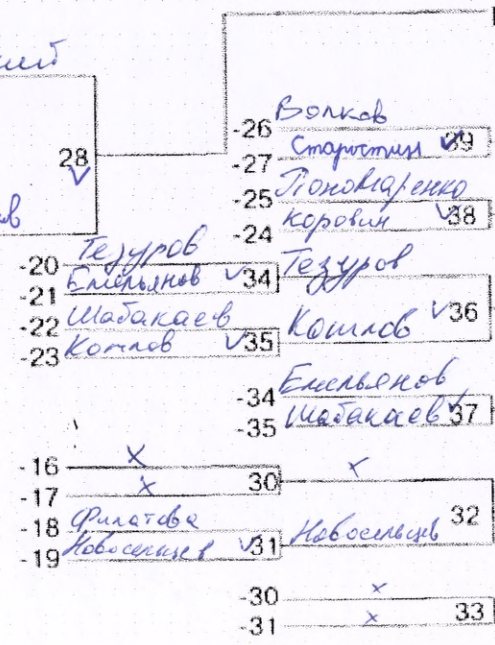 28
-26 Волков
-27 Старостин 39
-25 Пономаренко
-24 Коровин 38
-20 Тезуров
-21 Емельянов 34
Тезуров
-22 Шабакаев
-23 Котлов 35
Котлов 36
-34 Емельянов
-35 Шабакаев 37
-16 х
-17 х 30
х
-18 Филатова
-19 Новосельцев 31
Новосельцев 32
-30 х
-31 х 33